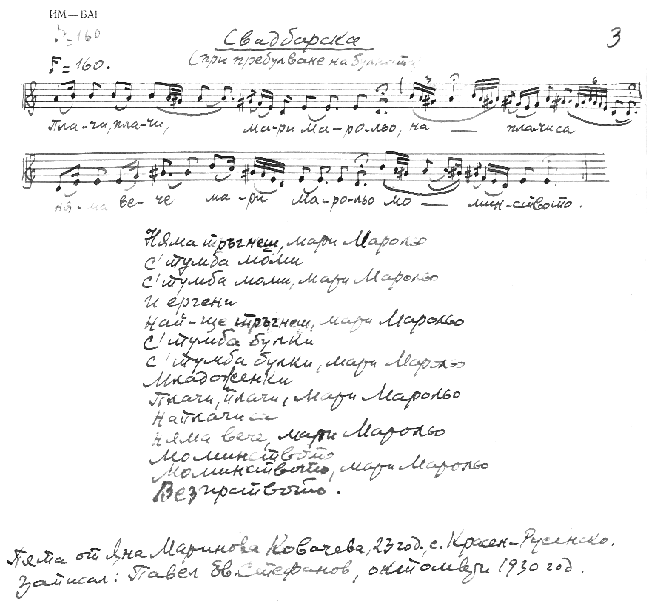 ИМ—БАН
♪=160
Свадбарска 3
(при пребулване на булката)
♪=160.
Плачи, плачи, ма-ри Ма-ро-льо, на — плачиса
ня-ма ве-че ма-ри Ма-ро-льо мо — мин-ството.
Няма тръгнеш, мари Марольо
С'тумба моми
С'тумба моми, мари Марольо
И ергени
Най-ще тръгнеш, мари Марольо
С'тумба булки
С'тумба булки, мари Марольо
Младоженки
Плачи, плачи, мари Марольо
Наплачиса
Няма вече, мари Марольо
Моминството
Моминството, мари Марольо
Пята от Яна Маринова Ковачева, 23 год., с. Красен-Русенско.
Записал: Павел Ев. Стефанов, октомври 1930 год.